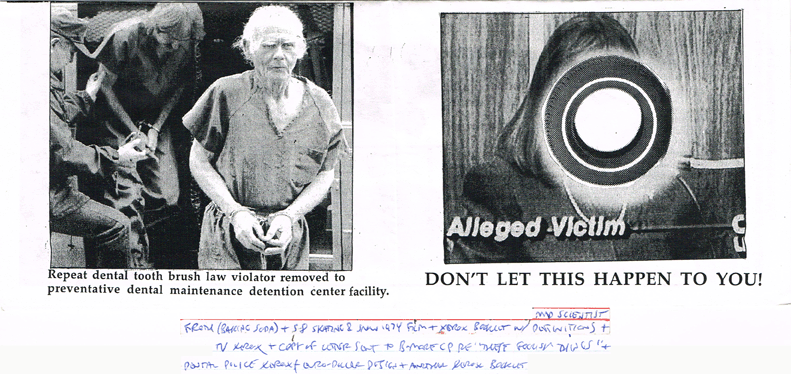 Repeat dental tooth brush law violator removed to
preventative dental maintenance detention center facility.
Alleged Victim
C
DON'T LET THIS HAPPEN TO YOU!
MAD SCIENTIST
FROTH (BAKING SODA) + S8 SKATING & SNOW 1974 FILM + XEROX BOOKLET W/ DEFINITIONS +
TV XEROX + COPY OF LETTER SENT TO B-MORE CP RE "THESE FOOLISH THINGS" +
DENTAL POLICE XEROX / DESIGN + ANOTHER XEROX BOOKLET